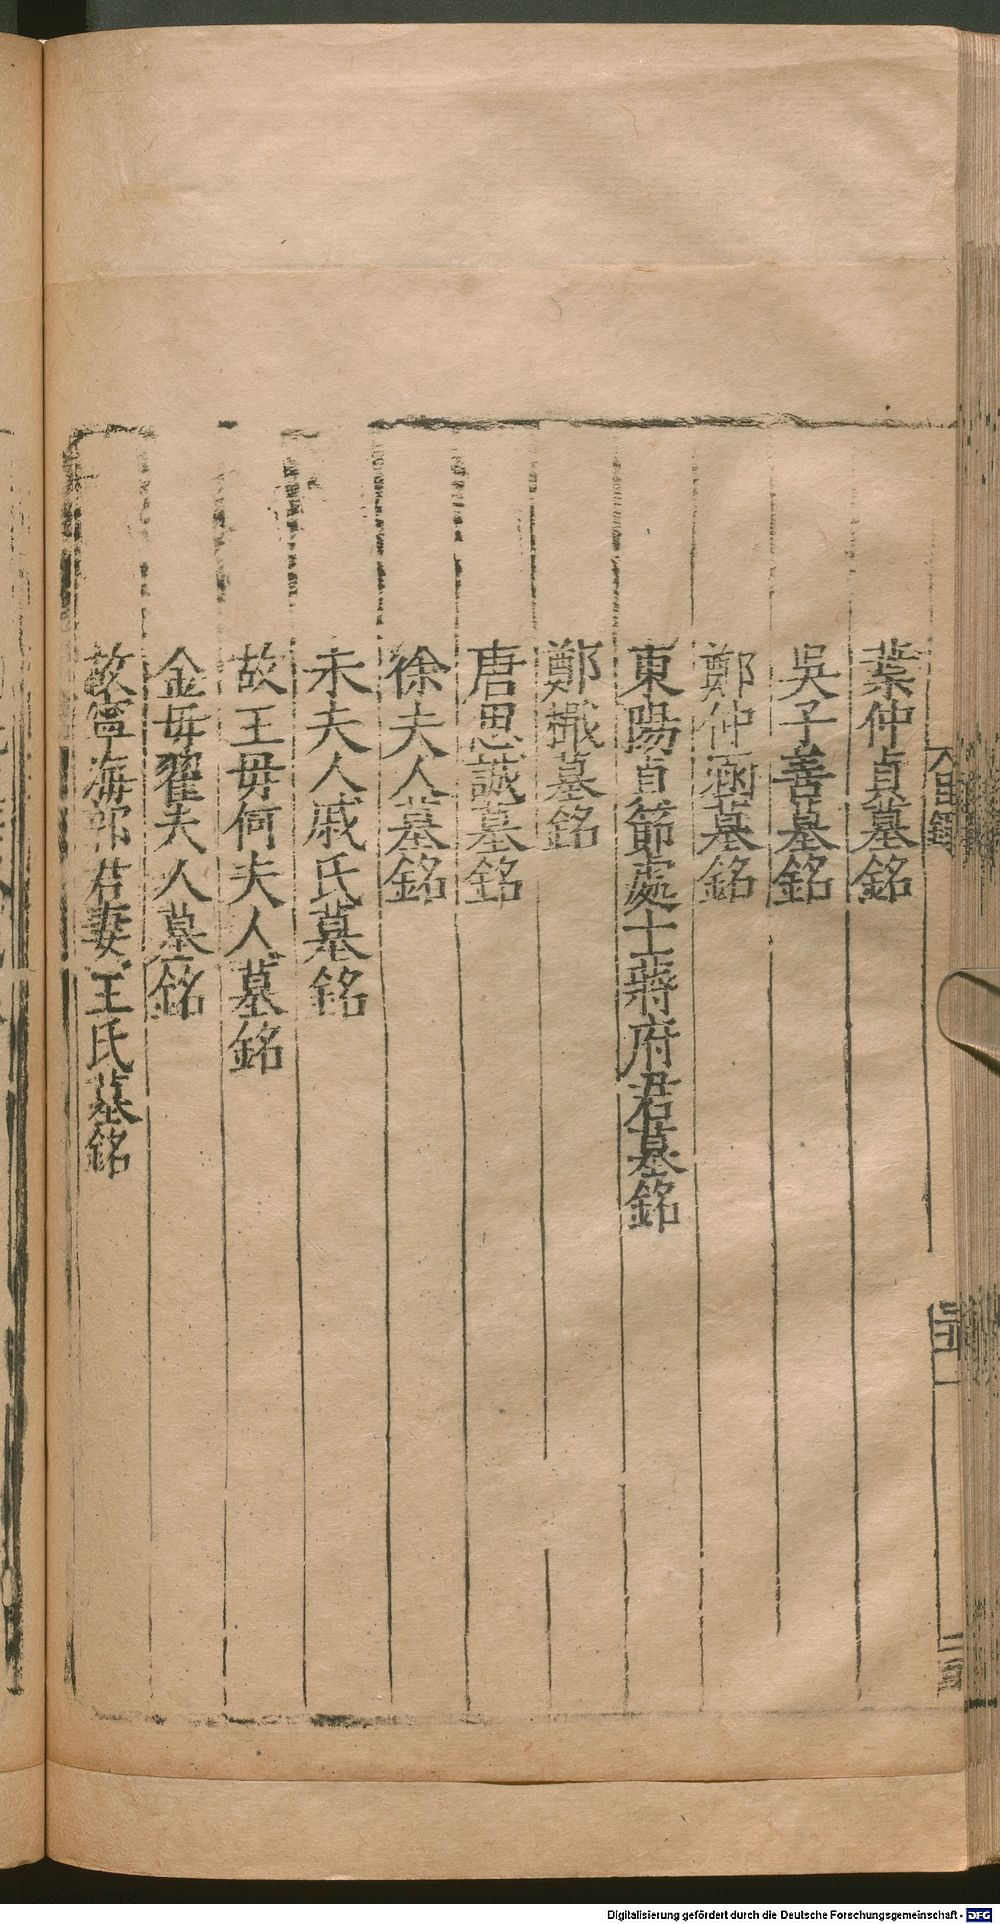 葉仲貞墓銘
吳子善墓銘
鄭仲涵墓銘
東陽貞節處士蔣府君墓銘
鄭墓銘
唐思誠墓銘
徐夫人墓銘
朱夫人戚氏墓銘
故王毋何夫人墓銘
金毋翟夫人墓銘
故寧海郭君妻王氏墓銘
目錄
Digitalisierung gefördert durch die Deutsche Forschungsgemeinschaft - DFG